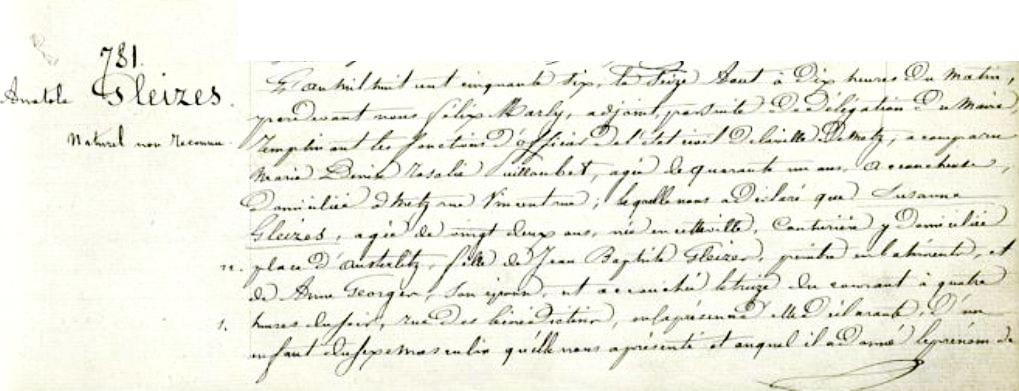 781.
Anatole Gleizes.
Naturel non reconnu.
L'an mil huit cent cinquante six, le Seize Aout à Dix heures du matin,
pardevant nous félix Marly, adjoint, par suite de délégation du Maire,
remplissant les fonctions d'officier de l'état civil de la ville de Metz, a comparu
Marie Denise Rosalie, agée de quarante un ans, accoucheuse,
Domiciliée à Metz rue Vincentrue; laquelle nous a déclaré que Susanne
Gleizes, agée de vingt deux ans, née en cette ville, Couturière y domiciliée
22. place d'austerlitz, fille de Jean Baptiste Gleizes, peintre en batiments, et
de Anne Georges, son épouse, est accouchée le treize du courant à quatre
1. heures du soir, rue des bénédictins, en la présence d'elle déclarante, d'un
enfant du sexe masculin qu'elle nous a présenté et auquel il a donné le prénom de